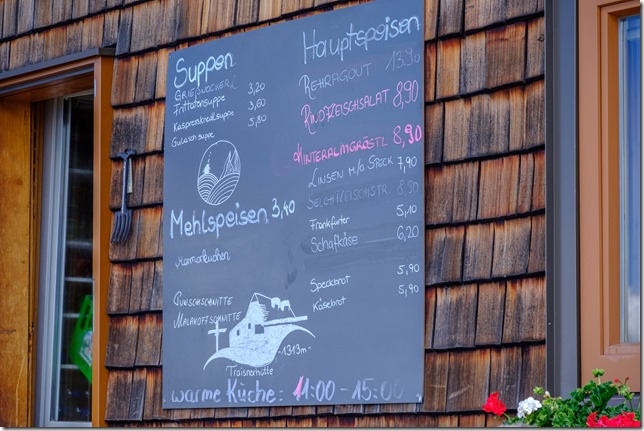 Suppen
GRIEßNOCKERL 3,20
Frittatensuppe 3,60
Kaspressknödlsuppe 5,80
Gulaschsuppe
Mehlspeisen 3,40
Marmorkuchen
PUNSCHSCHNITTE
MALAKOFFSCHNITTE
Hauptspeisen
REHRAGOUT 13,90
RINDFLEISCHSALAT 8,90
HINTERALMGRÖSTL 8,90
LINSEN M/O SPECK 7,90
SELCHFLEISCHSTR. 8,90
Frankfurter 5,10
Schafkäse 6,20
Speckbrot 5,90
Käsebrot 5,90
-1313m-
Traisnerhütte
warme Küche: 11:00-15:00